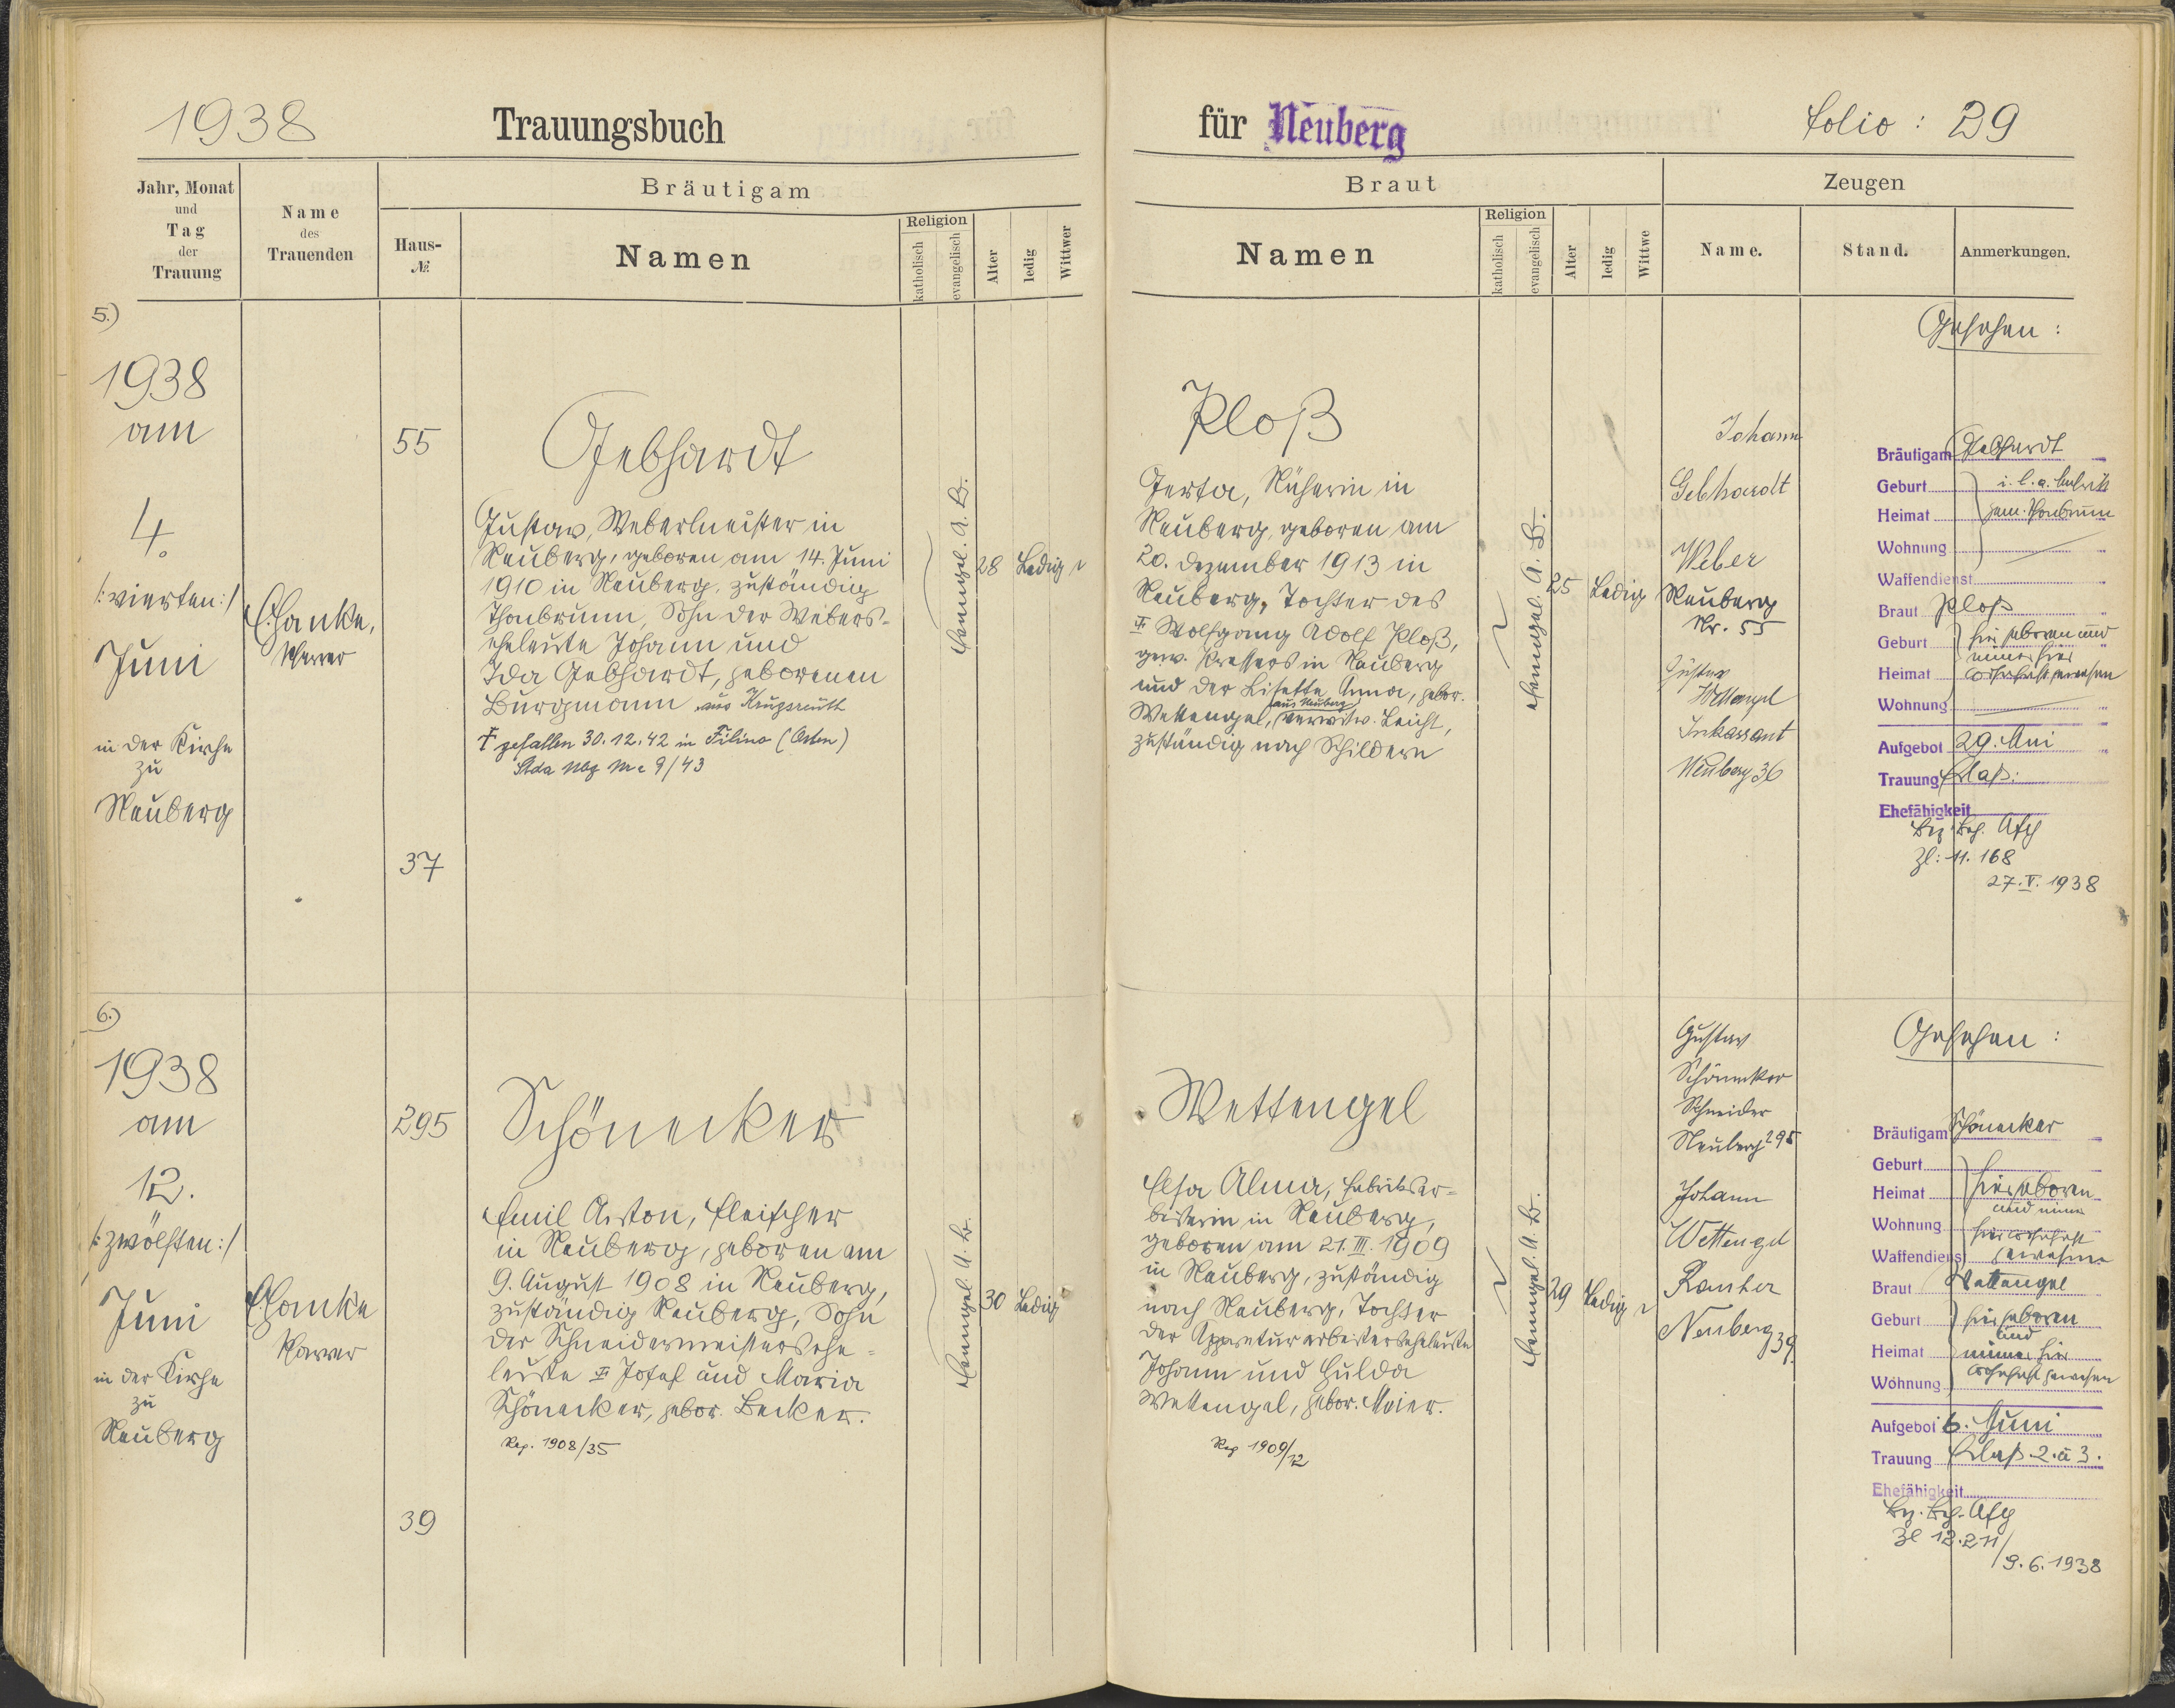 1938
Trauungsbuch
für Neuberg
Folio: 29
Jahr, Monat
und
Tag
der
Trauung
Name
des
Trauenden
Bräutigam
Haus-
№
Namen
Religion
katholisch
evangelisch
Alter
ledig
Wittwer
Braut
Namen
Religion
katholisch
evangelisch
Alter
ledig
Wittwe
Zeugen
Name.
Stand.
Anmerkungen.
5.)
1938
am
4.
/:vierten:/
Juni
in der Kirche
zu
Neuberg
Pfarrer
55
37
Gebhardt
Gustav, Webermeister in
Neuberg, geboren am 14. Juni
1910 in Neuberg, zuständig
Thonbrunn, Sohn der Webers-
eheleute Johann und
Ida Gebhardt, geborenen
Burgmann aus Krugsreuth
gefallen 30.12.42 in Filino (Osten)
9/43
evangel. A. B.
28
Ledig
Ploß
Gerta, Näherin in
Neuberg, geboren am
20. Dezember 1913 in
Neuberg, Tochter des
Wolfgang Adolf Ploß,
gew. in Neuberg
und der Lisette Anna, gebor.
aus Neuberg
Wettengel, verwitw. Leicht,
zuständig nach Schildern
evangel. A. B.
25
Ledig
Johann
Gebhardt
Weber
Neuberg
Nr. 55
Gustav
Wettengel
Inkassant
Neuberg 36
Gesehen:
Bräutigam Gebhardt
Geburt
Heimat
Wohnung
Waffendienst
Braut Ploß
Geburt hier geboren und
immer hier
Heimat wohnhaft gewesen
Wohnung
Aufgebot 29. Mai
Trauung Erlaß:
Ehefähigkeit
Bez. Beh. Asch
Zl: 11.168
27.V.1938
6.)
1938
am
12.
/:zwölften:/
Juni
in der Kirche
zu
Neuberg
Pfarrer
295
39
Schönecker
Emil Anton, Fleischer
in Neuberg, geboren am
9. August 1908 in Neuberg,
zuständig Neuberg, Sohn
der Schneidermeistersehe-
leute Josef und Maria
Schönecker, gebor. Becker.
Reg. 1908/35
evangel. A. B.
30
Ledig
Wettengel
Elsa Alma, Fabriksar-
beiterin in Neuberg,
geboren am 21.III.1909
in Neuberg, zuständig
nach Neuberg, Tochter
der Appreturarbeiterseheleute
Johann und Hulda
Wettengel, gebor. Maier.
Reg 1909/12
evangel. A. B.
29
Ledig
Gustav
Schönecker
Schneider
Neuberg 295
Johann
Wettengel
Neuberg 39
Gesehen:
Bräutigam Schönecker
Geburt
Heimat hier geboren
und immer
Wohnung hier wohnhaft
Waffendienst gewesen
Braut Wettengel
Geburt hier geboren
und
Heimat immer hier
Wohnung wohnhaft gewesen
Aufgebot 6. Juni
Trauung Erlaß 2. u 3.
Ehefähigkeit
Bez. Beh. Asch
Zl 12.211/
9.6.1938